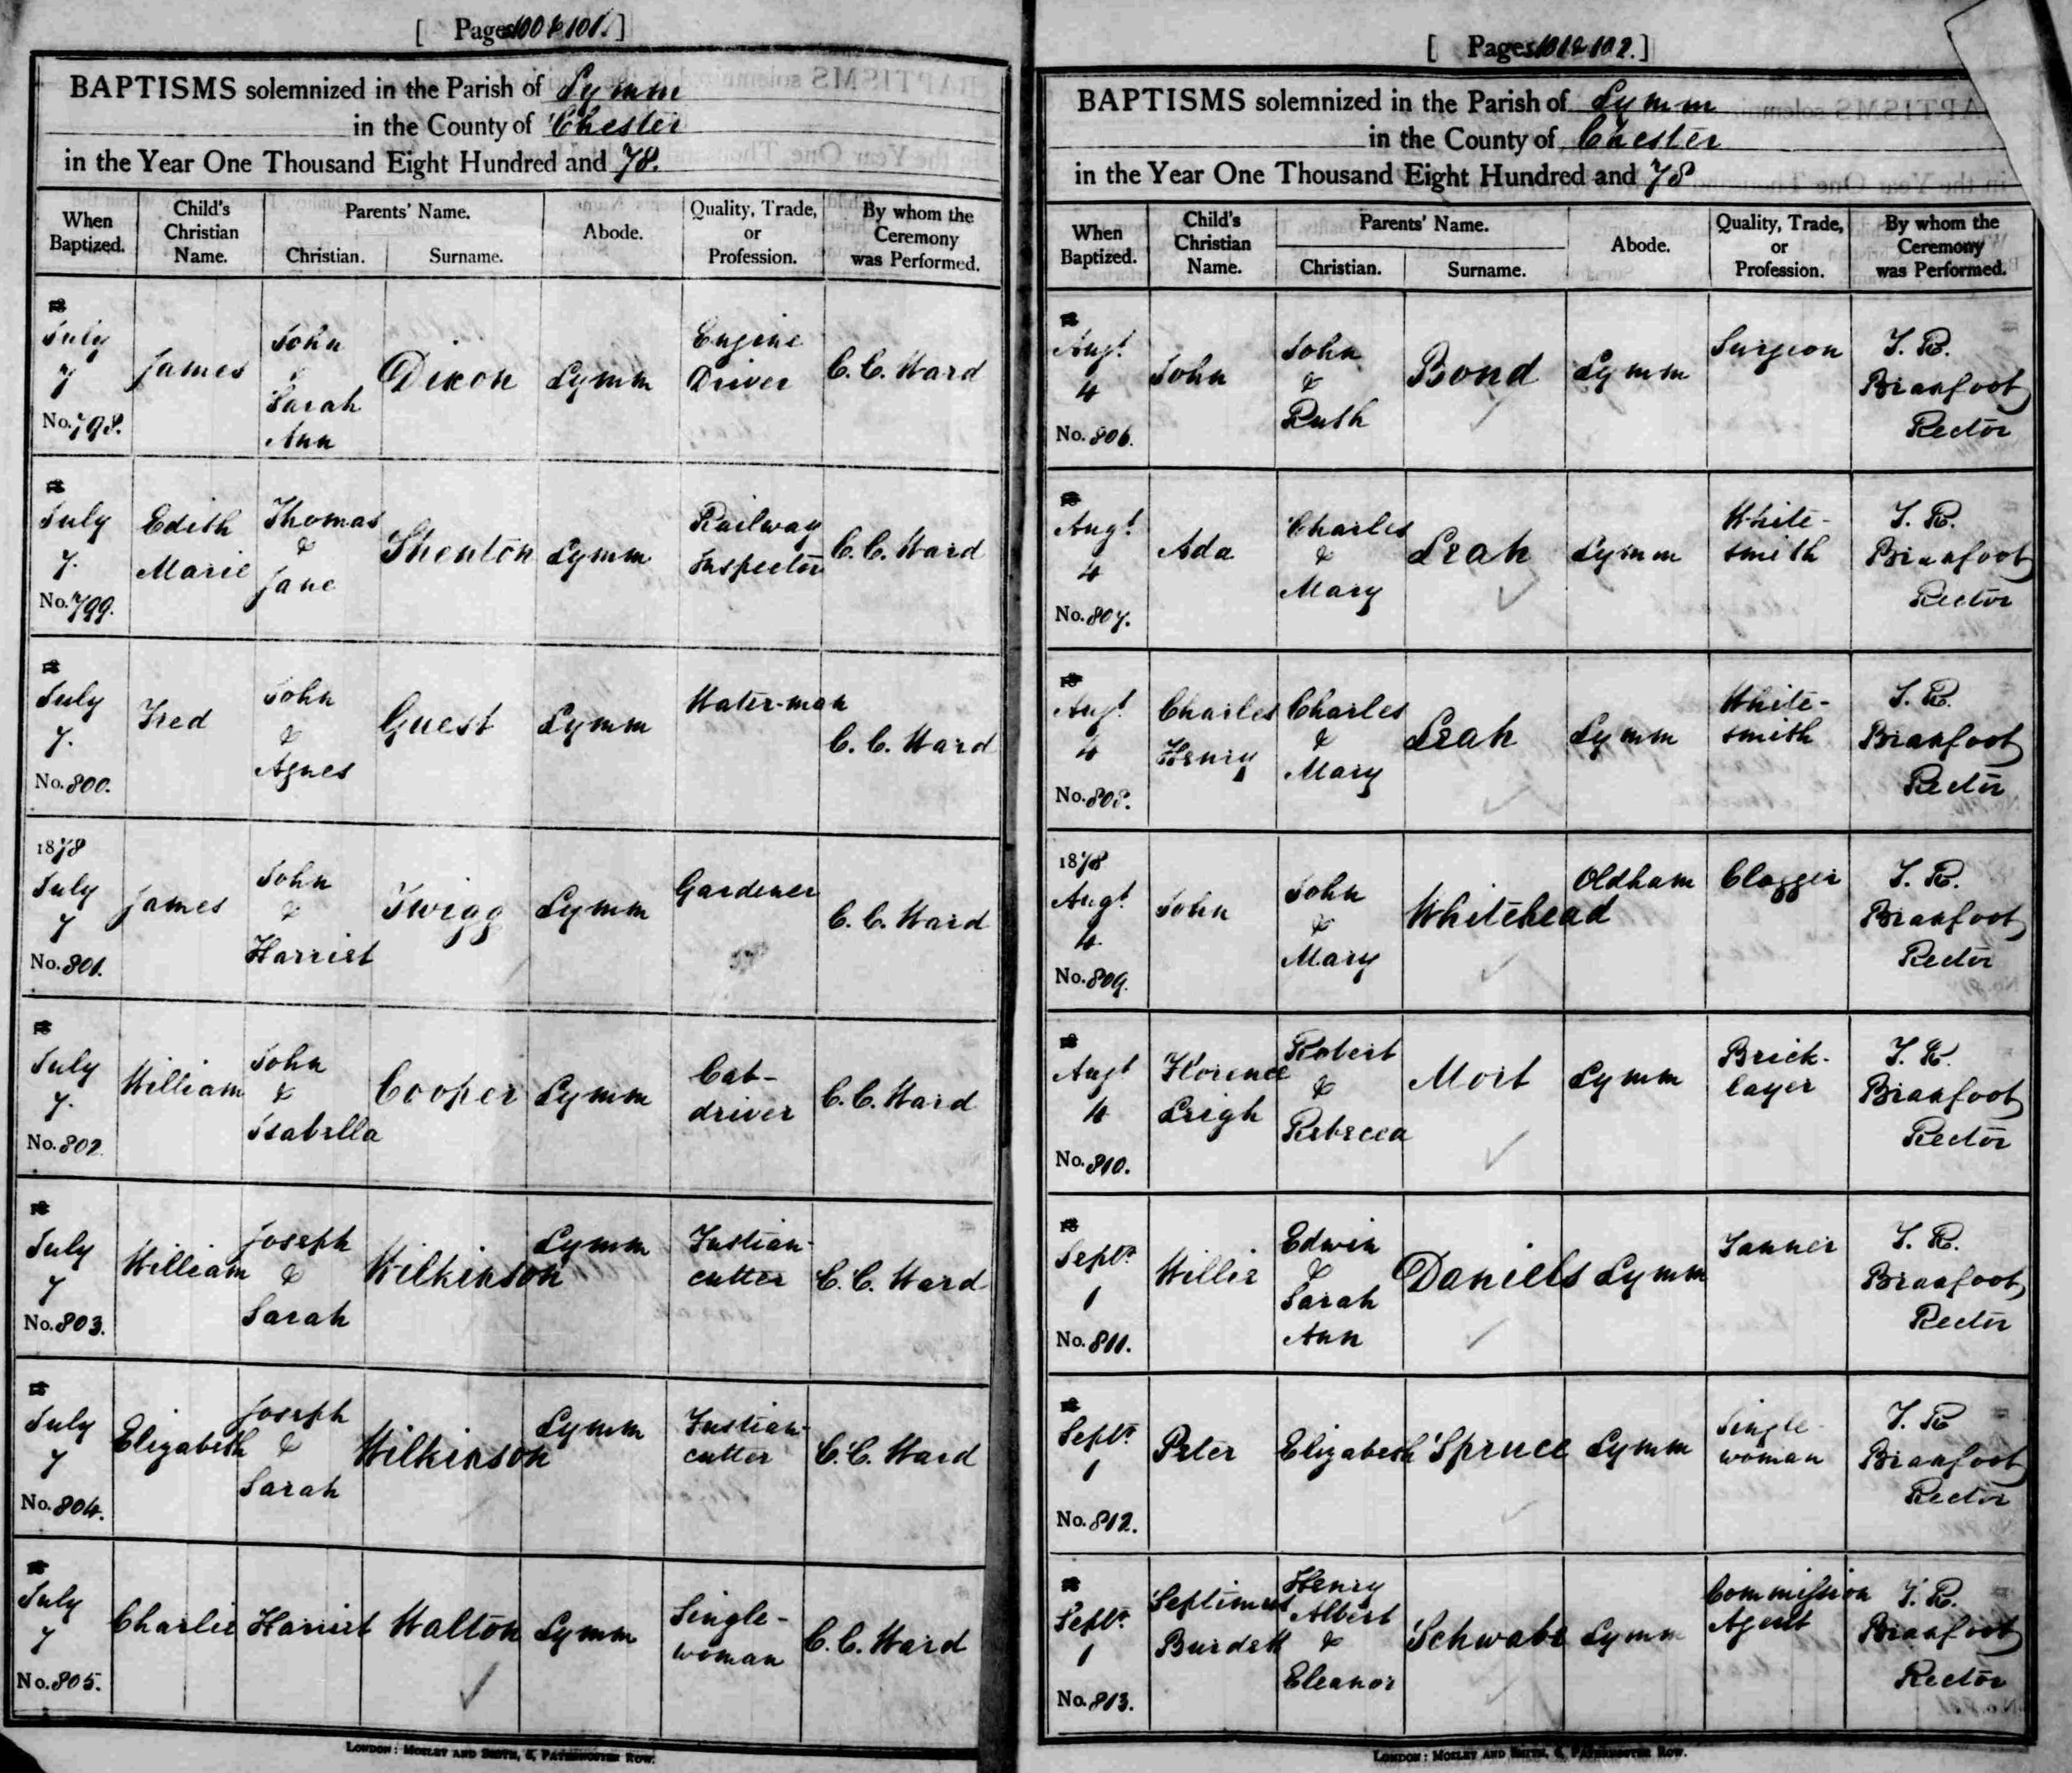 [ Pages 100 & 101. ]
BAPTISMS solemnized in the Parish of Lymm
in the County of Chester
in the Year One Thousand Eight Hundred and 78.
When Baptized. Child's Christian Name. Parents' Name. Christian. Surname. Abode. Quality, Trade, or Profession. By whom the Ceremony was Performed.
18
July 7 James John & Sarah Ann Dixon Lymm Engine Driver C. C. Ward
No. 798.
18
July 7. Edith Marie Thomas & Jane Shenton Lymm Railway Inspector C. C. Ward
No. 799.
18
July 7. Fred John & Agnes Guest Lymm Water-man C. C. Ward
No. 800.
1878
July 7 James John & Harriet Twigg Lymm Gardener C. C. Ward
No. 801.
18
July 7. William John & Isabella Cooper Lymm Cab-driver C. C. Ward
No. 802.
18
July 7 William Joseph & Sarah Wilkinson Lymm Fustian-cutter C. C. Ward
No. 803.
18
July 7 Elizabeth Joseph & Sarah Wilkinson Lymm Fustian-cutter C. C. Ward
No. 804.
18
July 7 Charlie Harriet Walton Lymm Single-woman C. C. Ward
No. 805.
LONDON: MOZLEY AND SMITH, 6, PATERNOSTER ROW.
[ Pages 101 & 102. ]
BAPTISMS solemnized in the Parish of Lymm
in the County of Chester
in the Year One Thousand Eight Hundred and 78
When Baptized. Child's Christian Name. Parents' Name. Christian. Surname. Abode. Quality, Trade, or Profession. By whom the Ceremony was Performed.
18
Augt. 4 John John & Ruth Bond Lymm Surgeon T. R. Branfoot Rector
No. 806.
18
Augt. 4 Ada Charles & Mary Leah Lymm White-smith T. R. Branfoot Rector
No. 807.
18
Augt. 4 Charles Henry Charles & Mary Leah Lymm White-smith T. R. Branfoot Rector
No. 808.
1878
Augt. 4. John John & Mary Whitehead Oldham Clogger T. R. Branfoot Rector
No. 809.
18
Augt 4 Florence Leigh Robert & Rebecca Mort Lymm Brick-layer T. R. Branfoot Rector
No. 810.
18
Septr. 1 Willie Edwin & Sarah Ann Daniels Lymm Tanner T. R. Branfoot Rector
No. 811.
18
Septr. 1 Peter Elizabeth Spruce Lymm Single-woman T. R. Branfoot Rector
No. 812.
18
Septr. 1 Septimus Burdett Henry Albert & Eleanor Schwabe Lymm Commission Agent T. R. Branfoot Rector
No. 813.
LONDON: MOZLEY AND SMITH, 6, PATERNOSTER ROW.